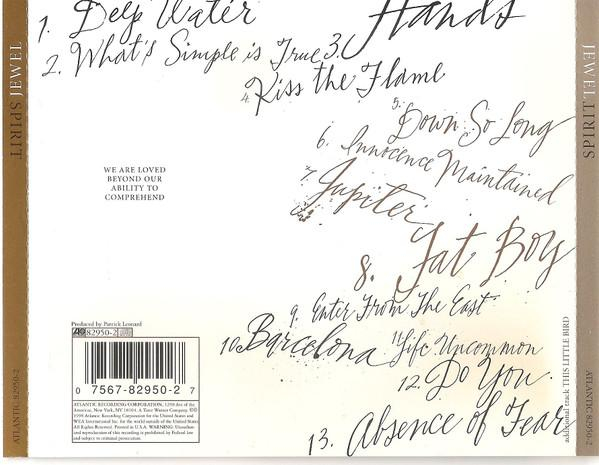 1. Deep Water
2. What's Simple is True
3. Hands
4. Kiss the Flame
5. Down So Long
6. Innocence Maintained
7. Jupiter
8. Fat Boy
9. Enter From The East
10. Barcelona
11. Life Uncommon
12. Do You
13. Absence of Fear
additional track THIS LITTLE BIRD
WE ARE LOVED
BEYOND OUR
ABILITY TO
COMPREHEND
Produced by Patrick Leonard
82950-2
0 7567-82950-2 7
ATLANTIC RECORDING CORPORATION, 1290 Ave of the
Americas, New York, NY 10104. A Time Warner Company. ©℗
1998 Atlantic Recording Corporation for the United States and
WEA International Inc. for the world outside of the United States
All Rights Reserved. Printed in U.S.A. WARNING: Unauthor-
ized reproduction of this recording is prohibited by Federal law
and subject to criminal prosecution.
SPIRIT JEWEL
ATLANTIC 82950-2
JEWEL SPIRIT
ATLANTIC 82950-2